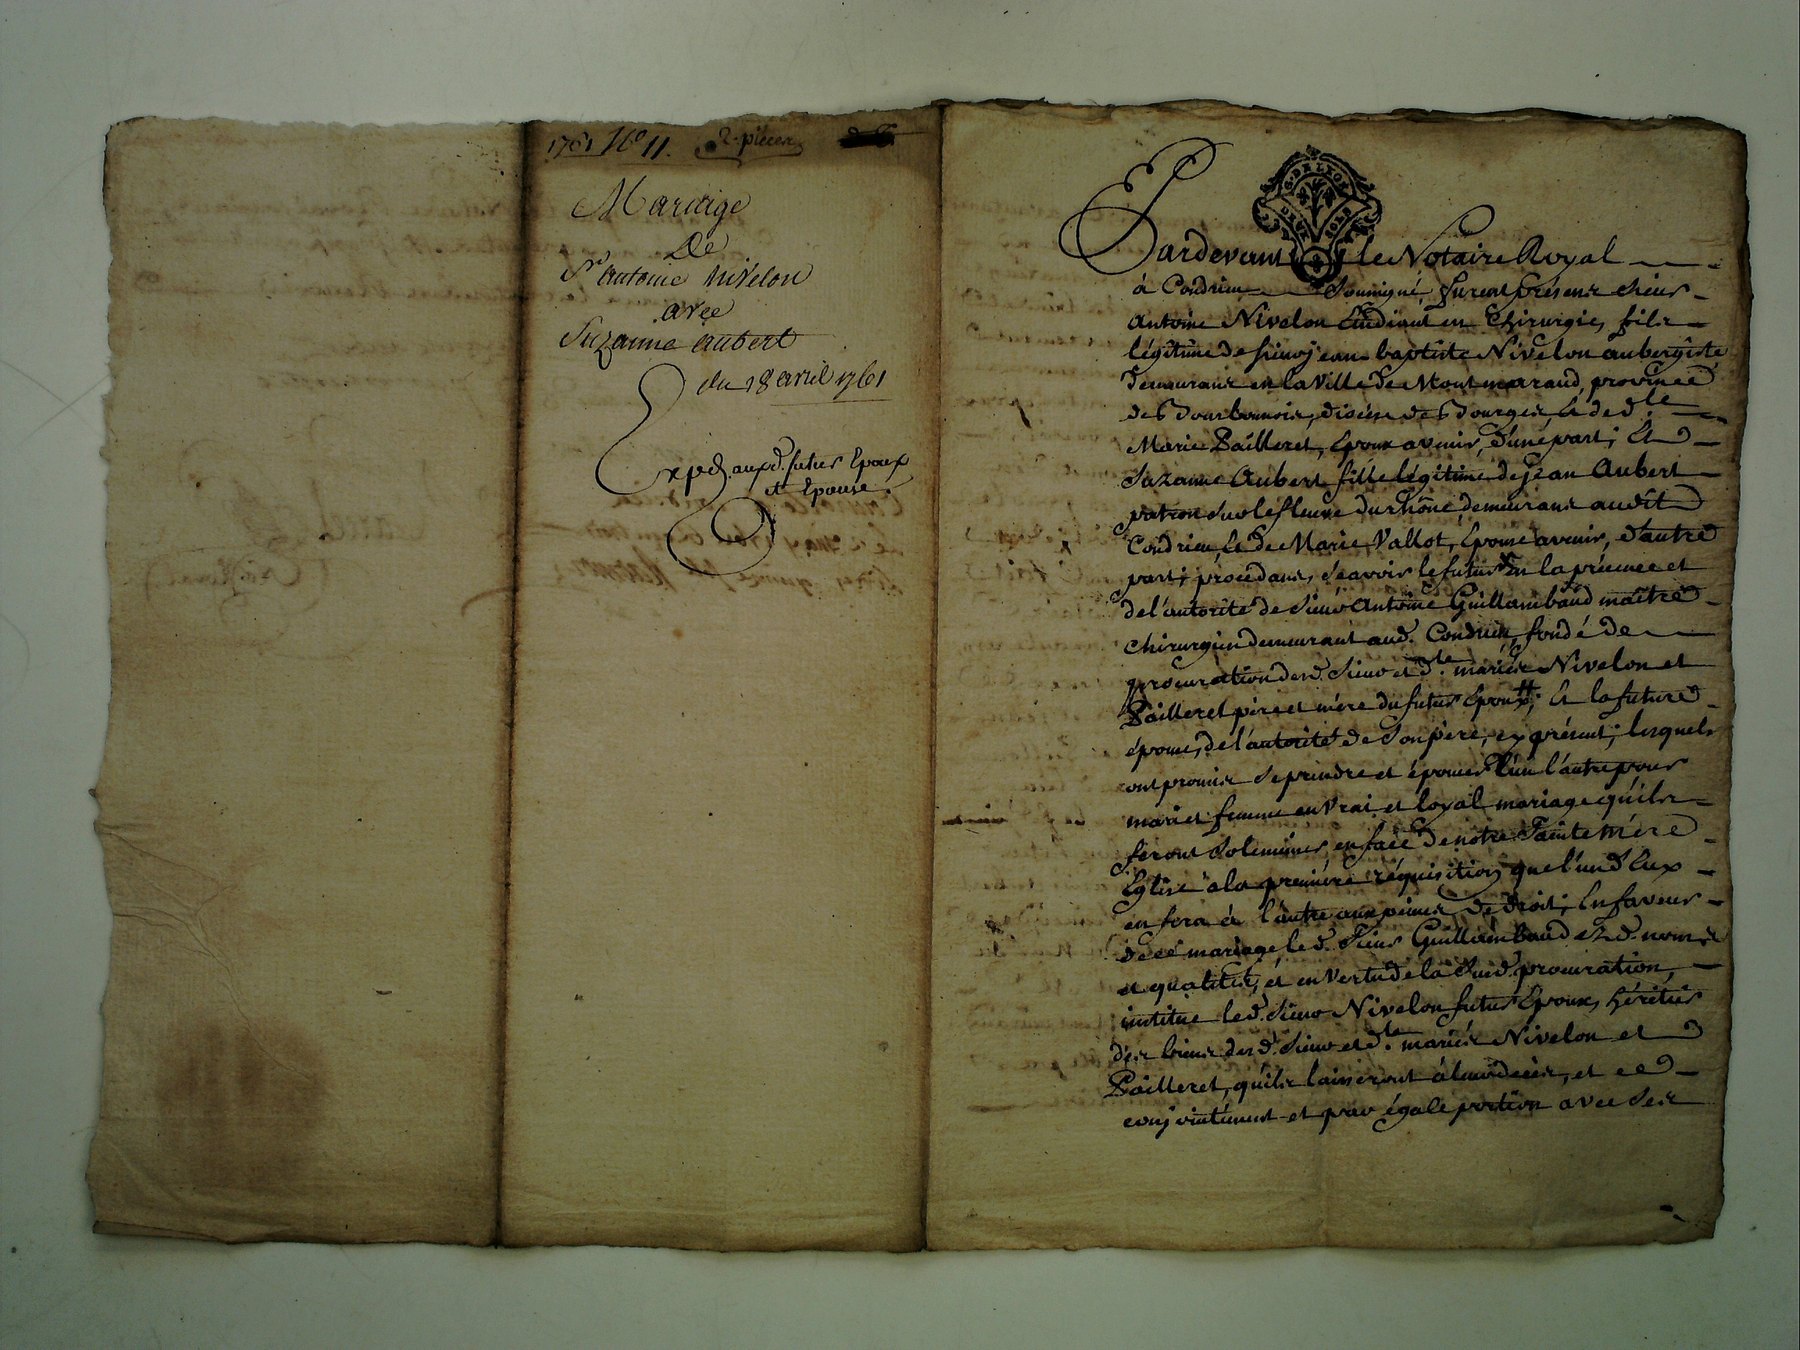 1761 N.º 11. 2. pieces
Mariage
De
S.r antoine Nivelon
avec
Suzanne aubert
du 18 avril 1761
Expé. auxd. futurs Epoux
et Epouse.
G. DE LYON
Pardevant le Notaire Royal
à Condrieu Soussigné, furent présens Sieur
Antoine Nivelon Etudiant en Chirurgie, fils
légitime de Sieur jean-baptiste Nivelon aubergiste
demeurans en la Ville de Montmaraud, province
de Bourbonnois, diocèse de Bourges, et de d.lle
Marie Pailleret, Epoux avenir, d'une part; Et
Suzanne Aubert fille légitime de jean Aubert
patron sur le fleuve du rhône, demeurans audit
Condrieu, et de Marie Vallot, Epouse avenir, d'autre
part; procédans, Sçavoir le futur en la présence et
de l'autorité de Sieur Antoine Guillambaud maître
chirurgien demeurant aud. Condrieu, fondé de
procuration desd. Sieur et d.lle mariés Nivelon et
Pailleret pere et mère du futur Epoux; Et la future
épouse, de l'autorité de Son père, cy présent; lesquels
ont promis Se prendre et épouser l'un l'autre pour
mari et femme en vrai et loyal mariage qu'ils
feront Solemniser en face de notre Sainte Mère
Eglise à la première réquisition que l'un d'Eux
en fera à l'autre aux peines de droit; En faveur
de ce mariage, le d. Sieur Guillambaud ezd. noms
et qualités, et en vertu de la Susd. procuration,
institue led. Sieur Nivelon futur Epoux, héritier
des biens desd. Sieur et d.lle mariés Nivelon et
Pailleret, qu'ils laisseront à leur décès, et ce
conjointement et par égale portion avec Ses